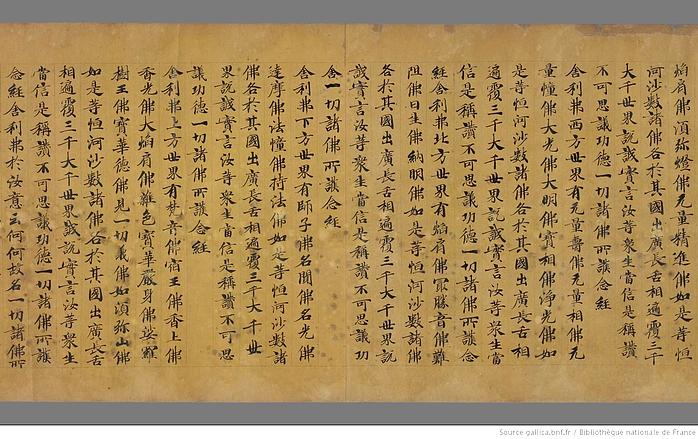 焰肩佛須弥燈佛无量精進佛如是等恒
河沙數諸佛各於其國出廣長舌相遍覆三千
大千世界說誠實言汝等衆生當信是稱讚
不可思議功德一切諸佛所護念經
舍利弗西方世界有无量壽佛无量相佛无
量憧佛大光佛大明佛寶相佛淨光佛如
是等恒河沙數諸佛各於其國出廣長舌相
遍覆三千大千世界說誠實言汝等衆生當
信是稱讚不可思議功德一切諸佛所護念
經舍利弗北方世界有焰肩佛最勝音佛難
阻佛日生佛納明佛如是等恒河沙數諸佛
各於其國出廣長舌相遍覆三千大千世界說
誠實言汝等衆生當信是稱讚不可思議功
一切諸佛所護念經
舍利弗下方世界有師子佛名聞佛名光佛
達摩佛法憧佛持法佛如是等恒河沙數諸
佛各於其國出廣長舌相遍覆三千大千世
界說誠實言汝等衆生當信是稱讚不可思
議功德一切諸佛所護念經
舍利弗上方世界有梵音佛宿王佛香上佛
香光佛大焰肩佛雜色寶華嚴身佛娑羅
樹王佛寶華德佛見一切義佛如須弥山佛
如是等恒河沙數諸佛各於其國出廣長舌
相遍覆三千大千世界說誠實言汝等衆生
當信是稱讚不可思議功德一切諸佛所護
念經舍利弗於汝意云何何故名一切諸佛所
Source gallica.bnf.fr / Bibliothèque nationale de France